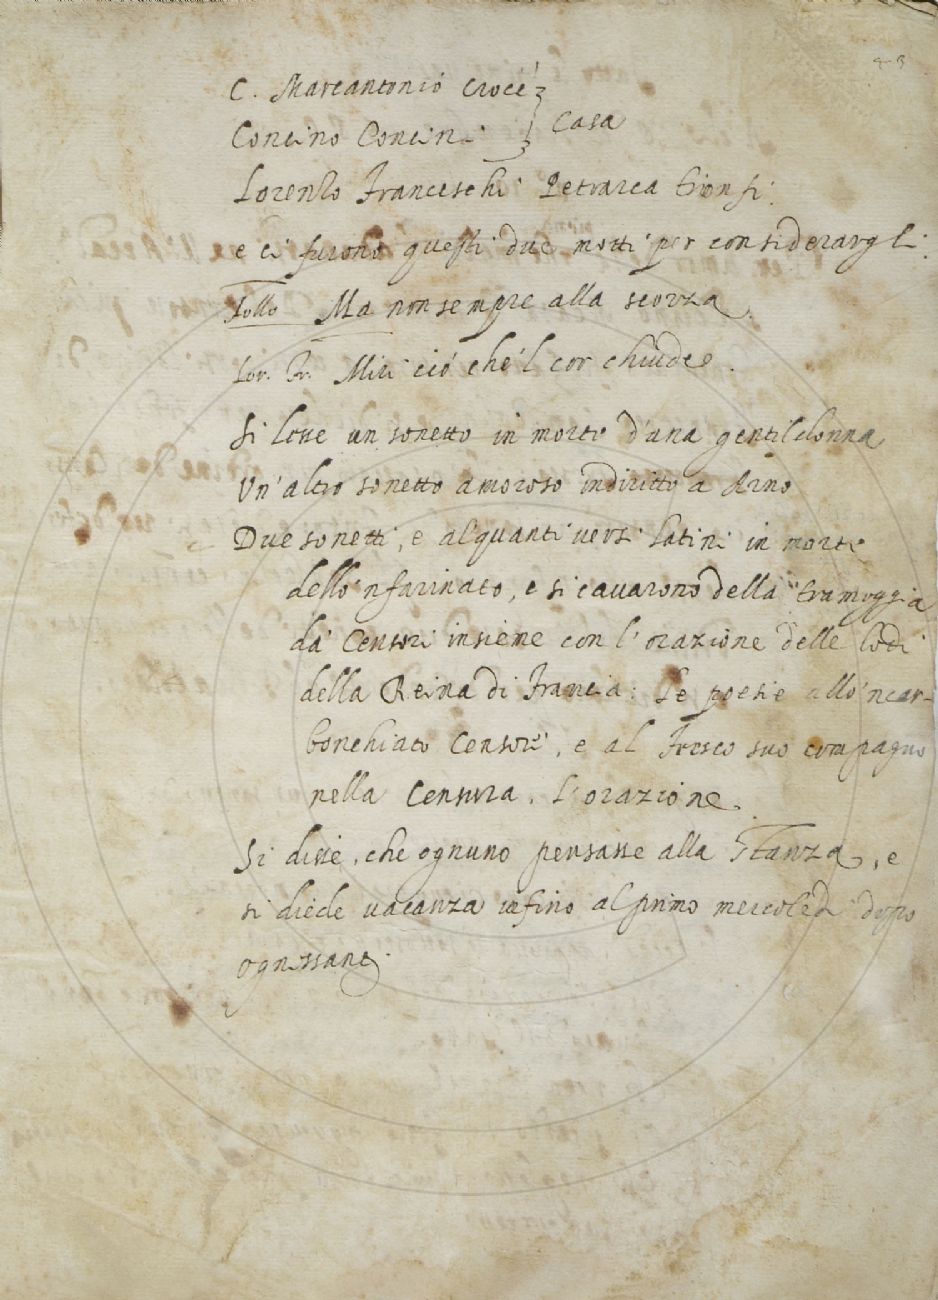 43
C. Marcantonio Croce
Concino Concini } Casa
Lorenzo Franceschi Petrarca trionfi.
e ci furono questi due motti per considerargli:
Tollo Ma non sempre alla scorza
Lor. Fr. Miri ciò che 'l cor chiude.
Si lesse un sonetto in morte d'una gentildonna
Un'altro sonetto amoroso indiritto a Arno
Due sonetti, e alquanti versi latini in morte
dello 'nfarinato, e si cavarono della tramoggia
da' Censori insieme con l'orazione delle lodi
della Reina di Francia: le poesie allo 'ncar-
bonchiato Censore, e al Fresco suo compagno
nella Censura. L'orazione.
Si disse, che ognuno pensasse alla Stanza, e
si diede vacanza infino al primo mercoledì dopo
ognissanti.